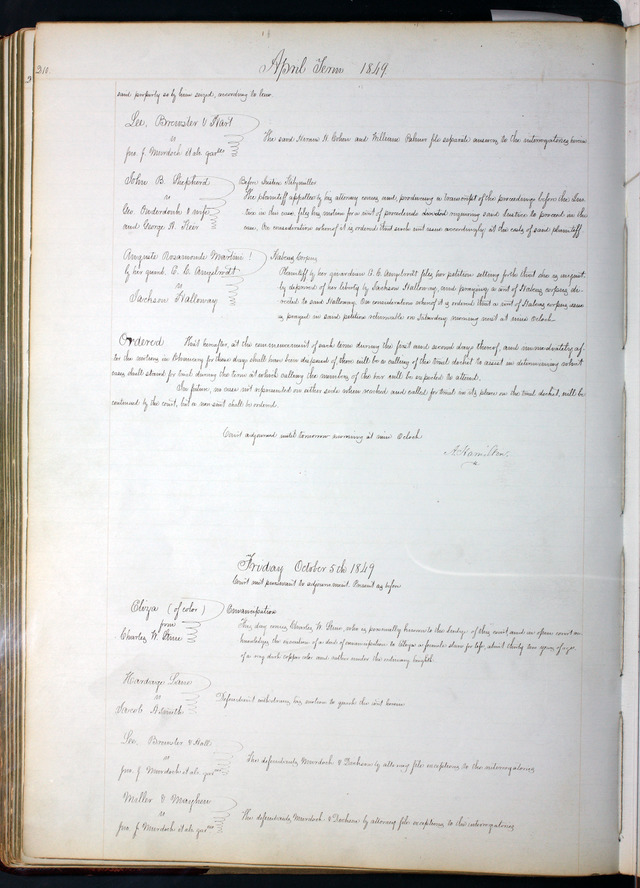 210.
April Term 1849
said property so by them seized, according to law.
Lee, Brewster & Hart
vs
Jno. J. Murdoch et als garees
The said Hiram H. Cohen and William Palmer file separate answers to the interrogatories herein
John B. Shepherd
vs
Geo. Onderdonk & wife
and George H. Weir
Before Justice
The plaintiff appellee by his attorney comes and producing a transcript of the proceedings before the Justice in this case files his motion for a writ of procedendo requiring said Justice to proceed in the case. On consideration whereof it is ordered that such writ issue accordingly at the costs of said plaintiff.
Auguste Rosamonde Martin
by her guard. A. C. Amplerdt
vs
Jackson Halloway
Habeas Corpus
Plaintiff by her guardian A. C. Amplerdt files her petition setting forth that she is unjustly deprived of her liberty by Jackson Halloway, and praying a writ of Habeas corpus directed to said Halloway. On consideration whereof it is ordered that a writ of Habeas corpus issue as prayed in said petition returnable on Saturday morning next at nine o'clock.
Ordered That hereafter, at the commencement of each term during the first and second days thereof, and immediately after the motions in Chancery for those days shall have been disposed of there will be a calling of the trial docket to assist in determining what cases shall stand for trial during the term at which calling the members of the bar will be expected to attend.
In future, no case not represented on either side when reached and called for trial in its place on the trial docket, will be continued by the court, but a non suit shall be ordered.
Court adjourned until tomorrow morning at nine o'clock
A. Hamilton,
Friday October 5th 1849
Court met pursuant to adjournment. Present as before
Eliza (of color)
from
Charles W.
Emancipation
This day comes Charles W. who is personally known to the Judge of this court and in open court acknowledges the execution of a deed of emancipation to Eliza a female slave for life, about thirty two years of age, of a very dark copper color and rather under the ordinary height.
Hardage Lane
vs
Jacob
Defendant withdraws his motion to quash the writ herein
Lee, Brewster & Hall
vs
Jno. J. Murdoch et als garees
The defendants, Murdoch & Dickson by attorney file exceptions to the interrogatories
Miller & Mayhew
vs
Jno J Murdoch et als garees
The defendants, Murdoch & Dickson by attorney file exceptions to the interrogatories